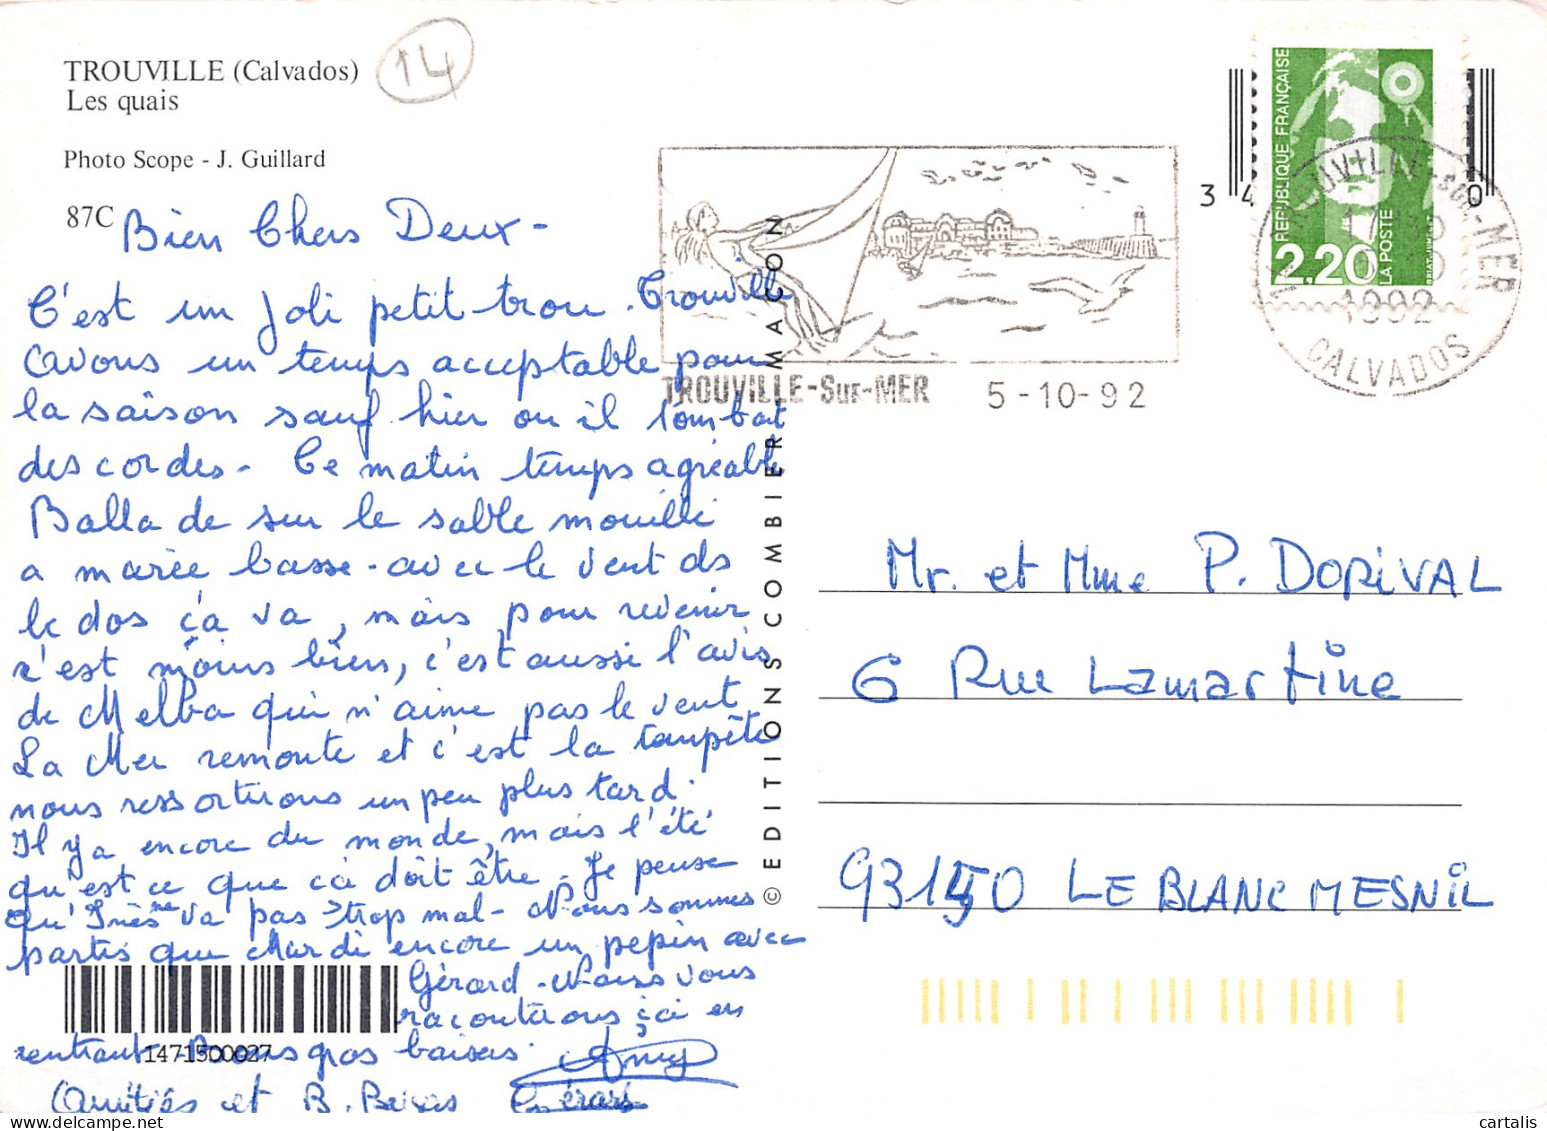 TROUVILLE (Calvados)
14
Les quais
Photo Scope - J. Guillard
87C
Bien Chers Deux -
C'est un joli petit trou. Trouville
avons un temps acceptable pour
la saison sauf hier ou il tombait
des cordes - Ce matin temps agréable
Balla de sur le sable mouillé
a marée basse - avec le vent ds
le dos ça va, mais pour revenir
c'est moins bien, c'est aussi l'avis
de Melba qui n'aime pas le vent
La Mer remonte et c'est la tempête
nous ressortirons un peu plus tard.
Il y a encore du monde, mais l'été
qu'est ce que ça doit être. Je pense
qu'Inès ne va pas trop mal - Nous sommes
partis que Mardi encore un pépin avec
Gérard - Nous vous
raconterons ça en
rentrant Bons gros baisers.
Amitiés et B. Baisers Gérard
1471500027
© EDITIONS COMBIER MACON
TROUVILLE-Sur-MER 5-10-92
REPUBLIQUE FRANÇAISE
2,20
LA POSTE
34 0
TROUVILLE-sur-MER
1992
CALVADOS
Mr. et Mme P. DORIVAL
6 Rue Lamartine
93150 LE BLANC MESNIL
cartalis